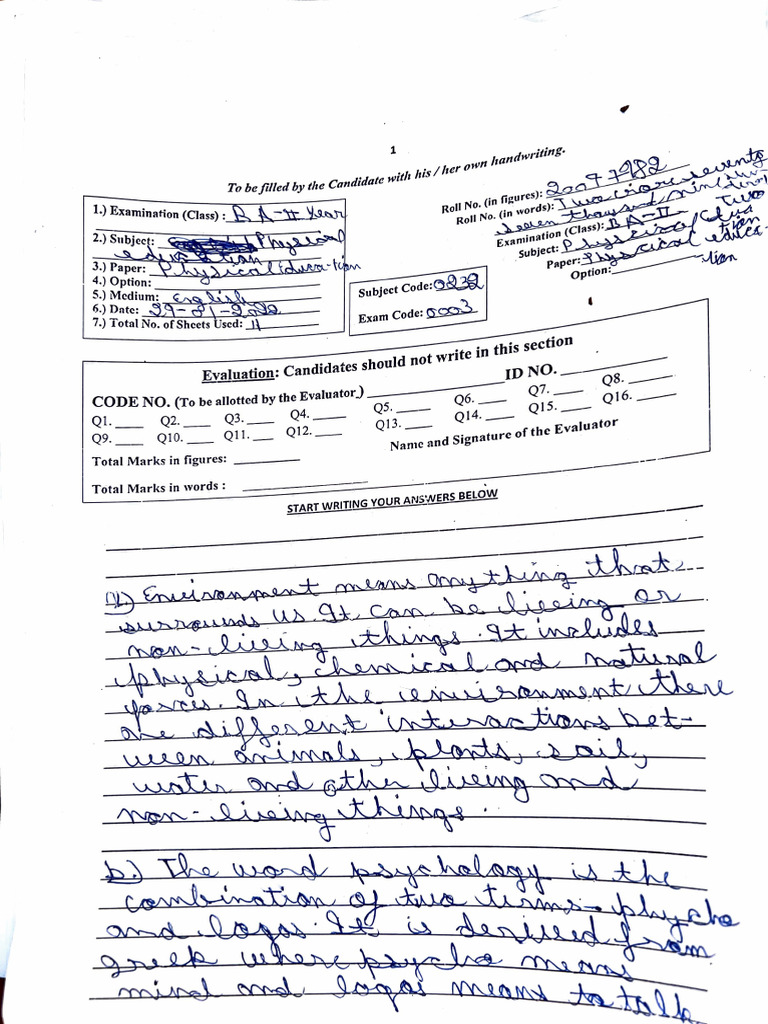 1
To be filled by the Candidate with his / her own handwriting.
1.) Examination (Class) : B A-II Year
2.) Subject: Physical
education
3.) Paper: Physical Education
4.) Option:
5.) Medium: English
6.) Date: 29-01-2022
7.) Total No. of Sheets Used: 11
Subject Code: 0232
Exam Code: 0003
Roll No. (in figures): 20077982
Roll No. (in words): Two crore seventy
seven thousand nine
Two
Examination (Class): BA-II
Subject: Physical
Paper: Physical educa-
tion
Option:
Evaluation: Candidates should not write in this section
CODE NO. (To be allotted by the Evaluator) ID NO.
Q1. Q2. Q3. Q4. Q5. Q6. Q7. Q8.
Q9. Q10. Q11. Q12. Q13. Q14. Q15. Q16.
Total Marks in figures: Name and Signature of the Evaluator
Total Marks in words :
START WRITING YOUR ANSWERS BELOW
Environment means anything that
surrounds us. It can be lieeing or
non-lieeing things. It includes
physical, chemical and natural
forces. In the environment there
are different interactions bet-
ween animals, plants, soil,
water and other lieeing and
non-lieeing things.
b.) The word psychology is the
combination of two terms- phycho
and logos. It is derieed from
greek where psycho means
mind and logos means to talk